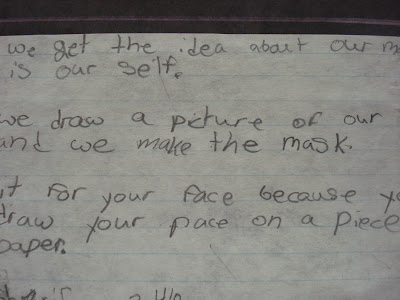 we get the idea about our
is our self.
we draw a picture of our
and we make the mask.
it for your face because
draw your pace on a piece
paper.